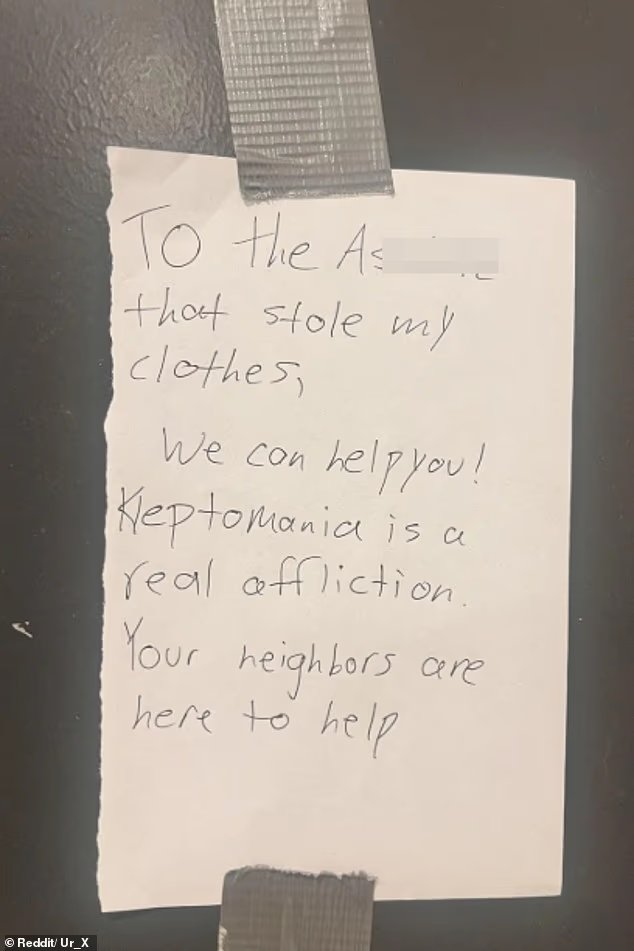 To the
that stole my
clothes,
We can help you!
Kleptomania is a
real affliction.
Your neighbors are
here to help
Reddit/ Ur_X